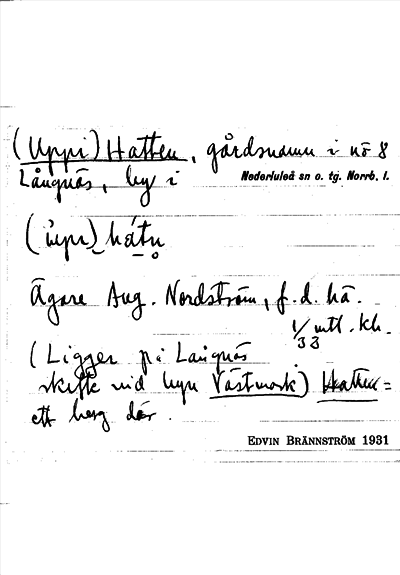 (Uppi) Hatten, gårdsnamn i nö 8
Långnäs, by i Nederluleå sn o. tg. Norrb. l.
Ägare Aug. Nordström, f.d. hä.
1/33 mtl. kr.
(Ligger på Långnäs
skifte vid byn Västmark) Hatten =
ett berg där.
EDVIN BRÄNNSTRÖM 1931